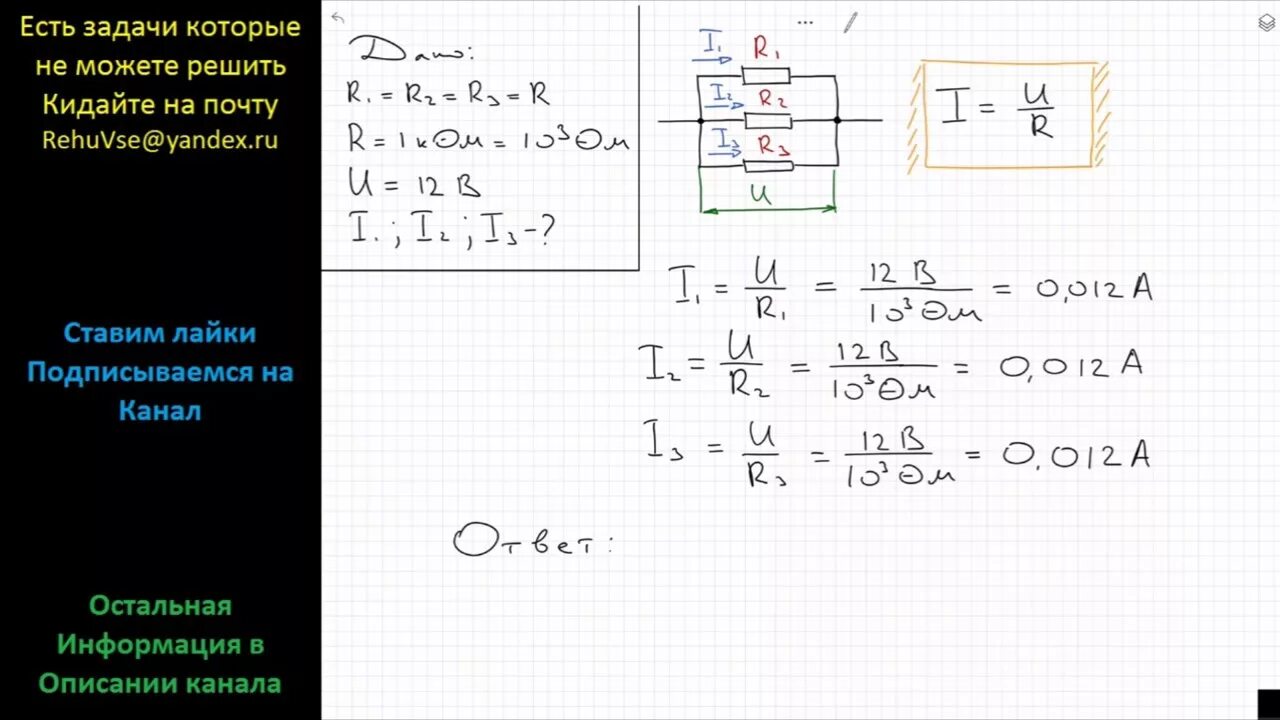 Есть задачи которые
не можете решить
Кидайте на почту
RehuVse@yandex.ru
Ставим лайки
Подписываемся на
Канал
Остальная
Информация в
Описании канала
Дано:
R₁ = R₂ = R₃ = R
R = 1 кОм = 10³ Ом
U = 12 В
I₁ ; I₂ ; I₃ - ?
I₁ R₁
I₂ R₂
I₃ R₃
U
I = U/R
I₁ = U/R₁ = 12 В/10³ Ом = 0,012 А
I₂ = U/R₂ = 12 В/10³ Ом = 0,012 А
I₃ = U/R₃ = 12 В/10³ Ом = 0,012 А
Ответ: